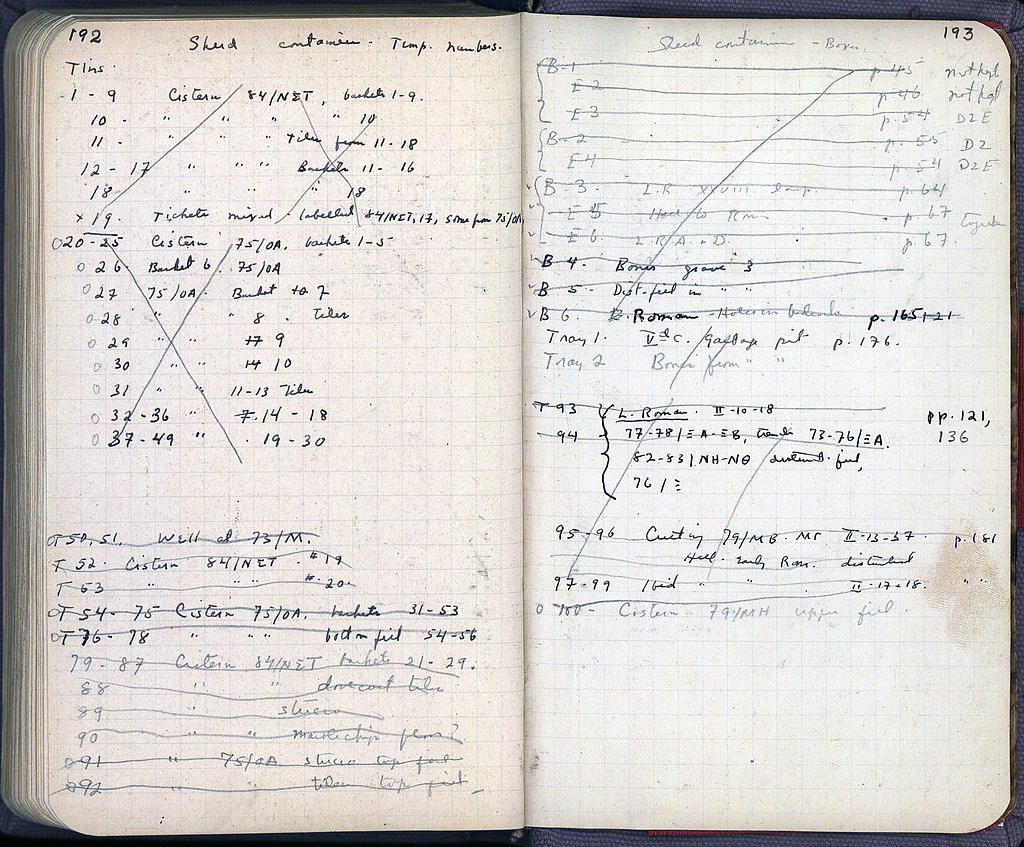 192
Sherd containers - Temp. numbers.
Tins.
1 - 9 Cistern 84/NΣT, baskets 1-9.
10 - " " " " 10
11 - " " " Tiles from 11 - 18
12 - 17 " " " Baskets 11 - 16
18 - " " 18
x 19. Tickets mixed - labelled 84/NΣT, 17, some from 75/ΘΛ
O 20 - 25 Cistern 75/ΘΛ, baskets 1-5
O 26 - Basket 6. 75/ΘΛ
O 27 75/ΘΛ. Basket 7
O 28 " " 8. Tiles
O 29 " " 9
O 30 " " 10
O 31 " " 11-13 Tiles
O 32-36 " 14 - 18
O 37-49 " 19 - 30
OT 50, 51. Well at 73/M.
T 52. Cistern 84/NΣT. #19
T 53 " " " #20
OT 54 - 75 Cistern 75/ΘΛ. baskets 31-53
OT 76 - 78 " " " bottom fill 54-56
79 - 87 Cistern 84/NΣT baskets 21-29.
88 " " dovecot tile
89 " stucco
90 " " marble chips floor?
O 91 " 75/ΘΛ stucco top fill
O 92 " tiles top fill
193
Sherd containers - Boxes
B-1 p. 45 not kpt
E 2 p. 46 not kpt
E 3 p. 54 D2E
B-2 p. 55 D2
E 4 p. 54 D2E
B-3. L.R. XXVIII lamp. p. 64
E 5 Hell to Rom p. 67
E 6. L.R.A.-D. p. 67.
B 4. Bones grave 3
B 5. Dist. fill in " "
B 6. Roman p. 165,
Tray 1. C. Garbage pit p. 176.
Tray 2 Bones from " "
T 93 L. Roman. II-10-18 pp. 121,
94 77-78/ΞA-ΞB, trench 73-76/ΞA. 136
82-83/NH-NΘ disturbed fill,
76/Ξ
95-96 Cutting 79/MB-MΓ II-13-37. p. 181
Hell-early Rom. disturbed
97-99 Ibid " " II-17-18. " "
O 100 - Cistern - 79/MH upper fill